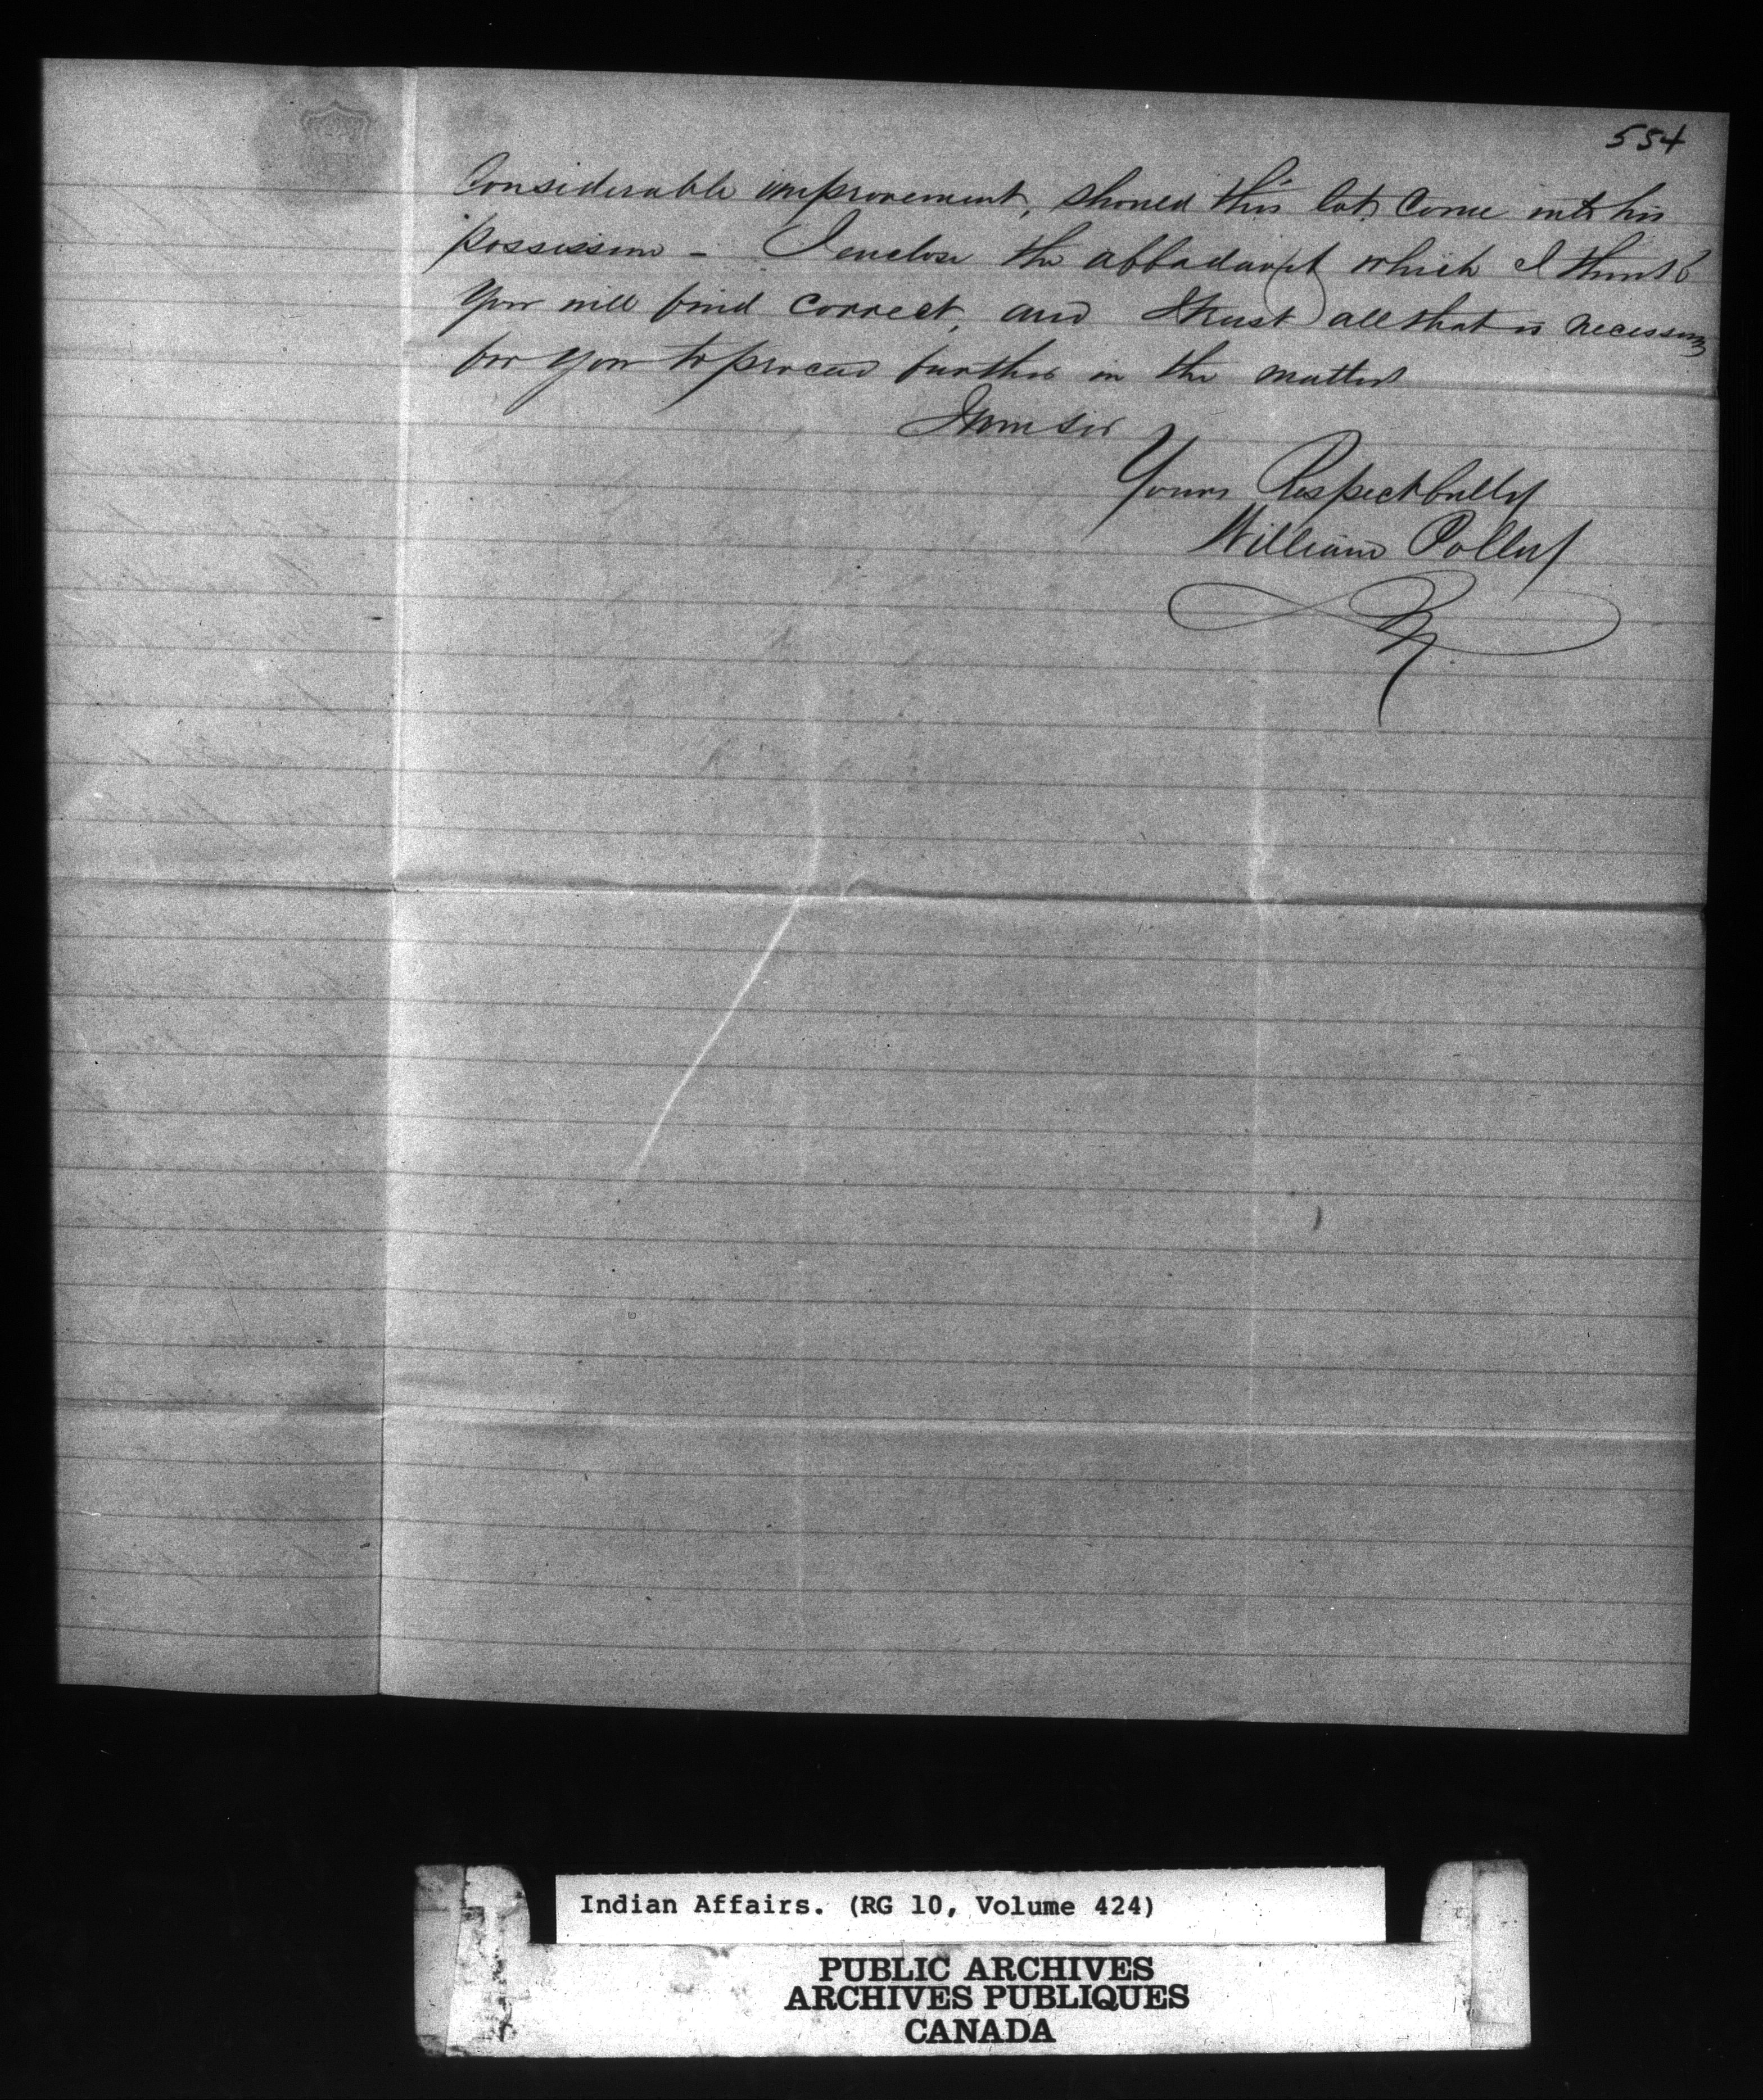 554
Considerable improvement, should this lot, Come into his
possession - I enclose the affadavit which I think
you will find correct, and trust all that is necessary
for you to proceed further in the matter
I am sir
Yours Respectfully
William Polley
Indian Affairs. (RG 10, Volume 424)
PUBLIC ARCHIVES
ARCHIVES PUBLIQUES
CANADA